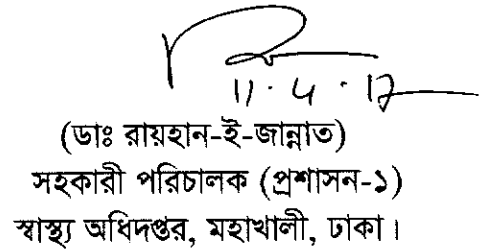 11.4.17
(ডাঃ রায়হান-ই-জান্নাত)
সহকারী পরিচালক (প্রশাসন-১)
স্বাস্থ্য অধিদপ্তর, মহাখালী, ঢাকা।